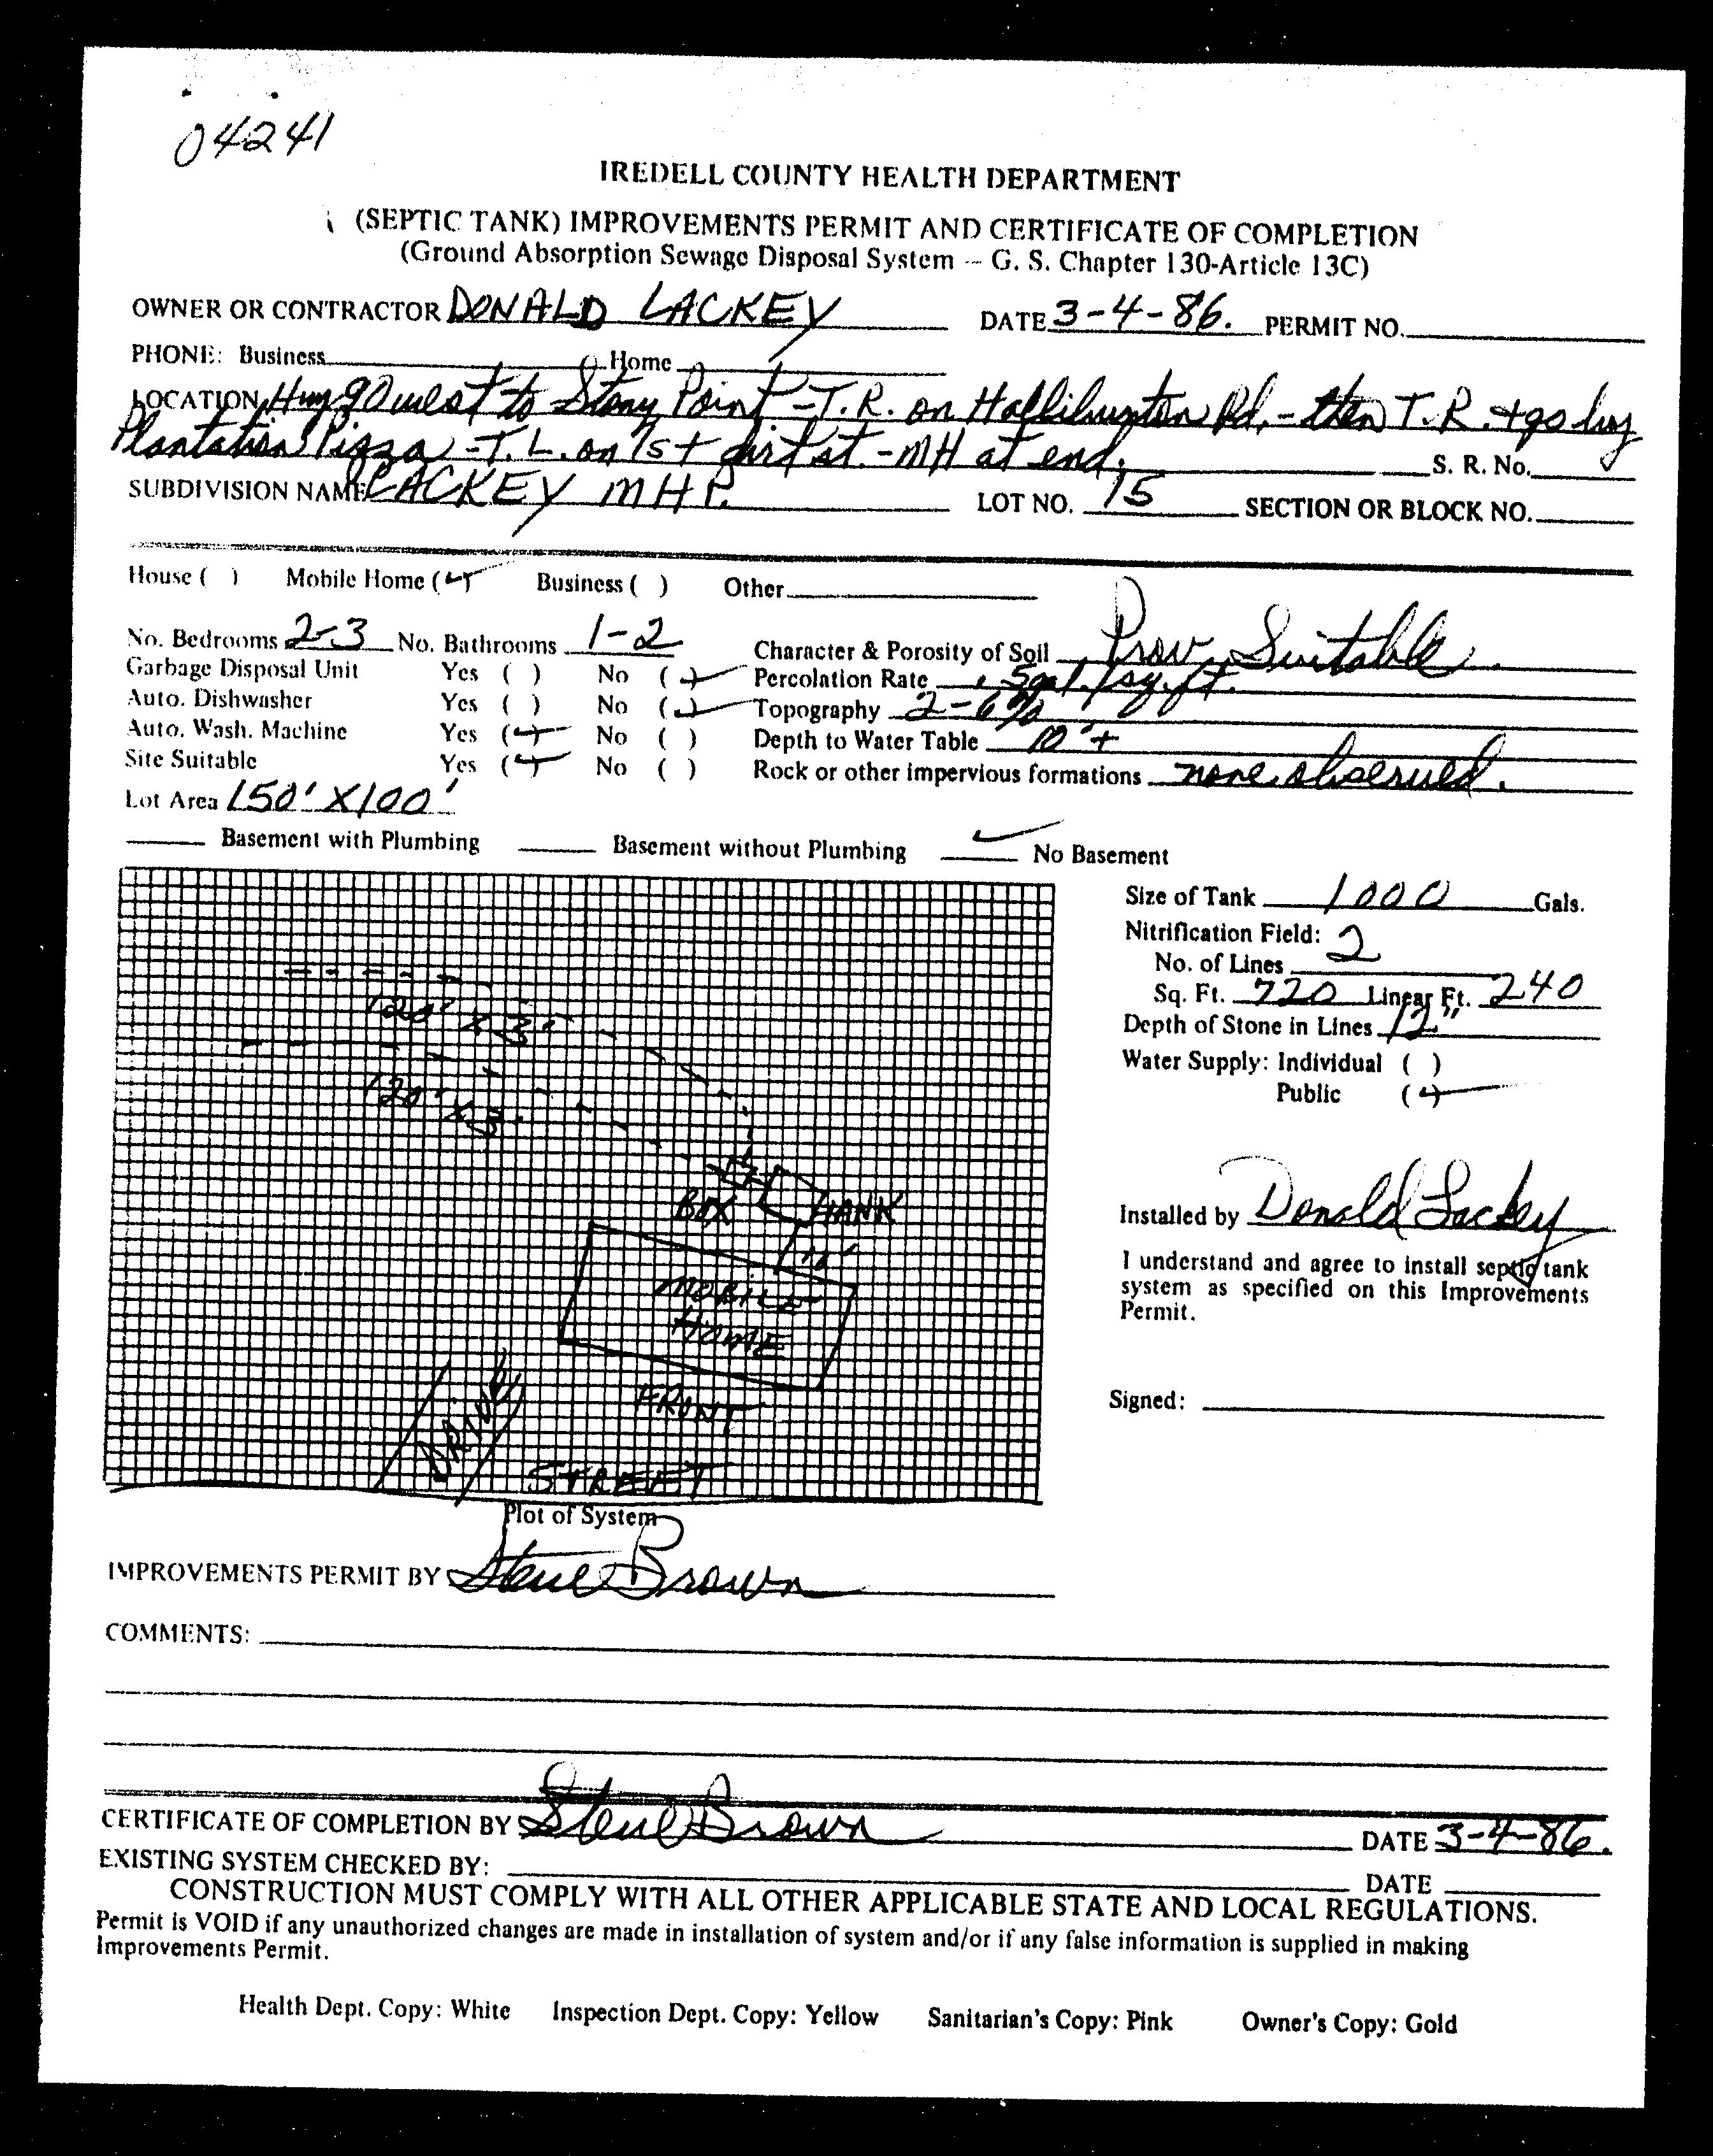 04241
IREDELL COUNTY HEALTH DEPARTMENT
(SEPTIC TANK) IMPROVEMENTS PERMIT AND CERTIFICATE OF COMPLETION
(Ground Absorption Sewage Disposal System -- G. S. Chapter 130-Article 13C)
OWNER OR CONTRACTOR DONALD LACKEY DATE 3-4-86. PERMIT NO.
PHONE: Business Home
LOCATION Hwy 90 west to Stony Point - T.R. on Halliburton Rd. - then T.R. + go by
Plantation Pizza - T.L. on 1st dirt st. - MH at end. S. R. No.
SUBDIVISION NAME LACKEY MHP. LOT NO. 15 SECTION OR BLOCK NO.
House ( ) Mobile Home (✓) Business ( ) Other
No. Bedrooms 2-3 No. Bathrooms 1-2 Character & Porosity of Soil Prov. Suitable
Garbage Disposal Unit Yes ( ) No (✓) Percolation Rate .5gal./sq.ft.
Auto. Dishwasher Yes ( ) No (✓) Topography 2-6%
Auto. Wash. Machine Yes (✓) No ( ) Depth to Water Table 10'+
Site Suitable Yes (✓) No ( ) Rock or other impervious formations none observed.
Lot Area 150' X 100'
Basement with Plumbing Basement without Plumbing ✓ No Basement
Size of Tank 1000 Gals.
Nitrification Field:
No. of Lines 2
Sq. Ft. 720 Linear Ft. 240
Depth of Stone in Lines 12"
Water Supply: Individual ( )
Public (✓)
120' X 3'
120' X 3'
BOX TANK
MOBILE
HOME
FRONT
DRIVE
STREET
Installed by Donald Lackey
I understand and agree to install septic tank
system as specified on this Improvements
Permit.
Signed:
Plot of System
IMPROVEMENTS PERMIT BY Steve Brown
COMMENTS:
CERTIFICATE OF COMPLETION BY Steve Brown DATE 3-4-86.
EXISTING SYSTEM CHECKED BY: DATE
CONSTRUCTION MUST COMPLY WITH ALL OTHER APPLICABLE STATE AND LOCAL REGULATIONS.
Permit is VOID if any unauthorized changes are made in installation of system and/or if any false information is supplied in making
Improvements Permit.
Health Dept. Copy: White Inspection Dept. Copy: Yellow Sanitarian's Copy: Pink Owner's Copy: Gold